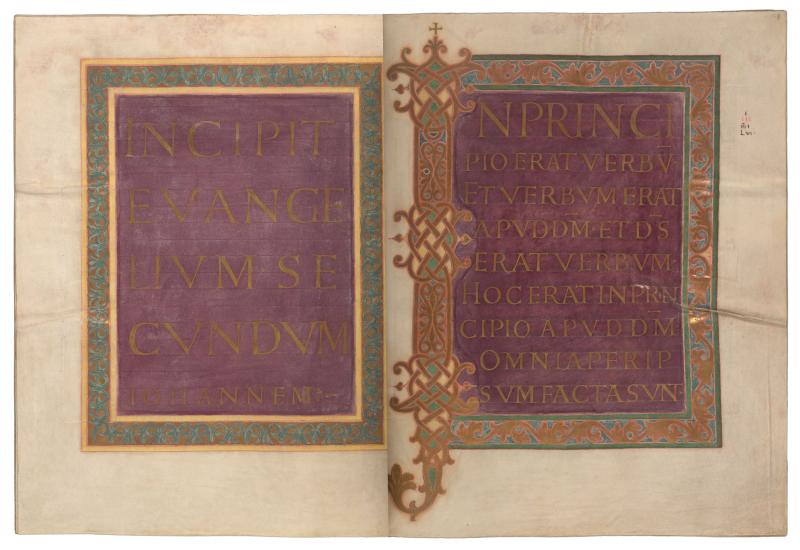 INCIPIT
EVANGE
LIUM·SE
CUNDUM
IOHANNEM:~
INPRINCI
PIO ERAT VERBŪ·
ET VERBVM ERAT
APVD DM̄·ET DS̄
ERAT VERBVM·
HOC ERAT IN PRN
CIPIO APVD DM̄
OMNIA PER IP
SVM FACTA SUN·